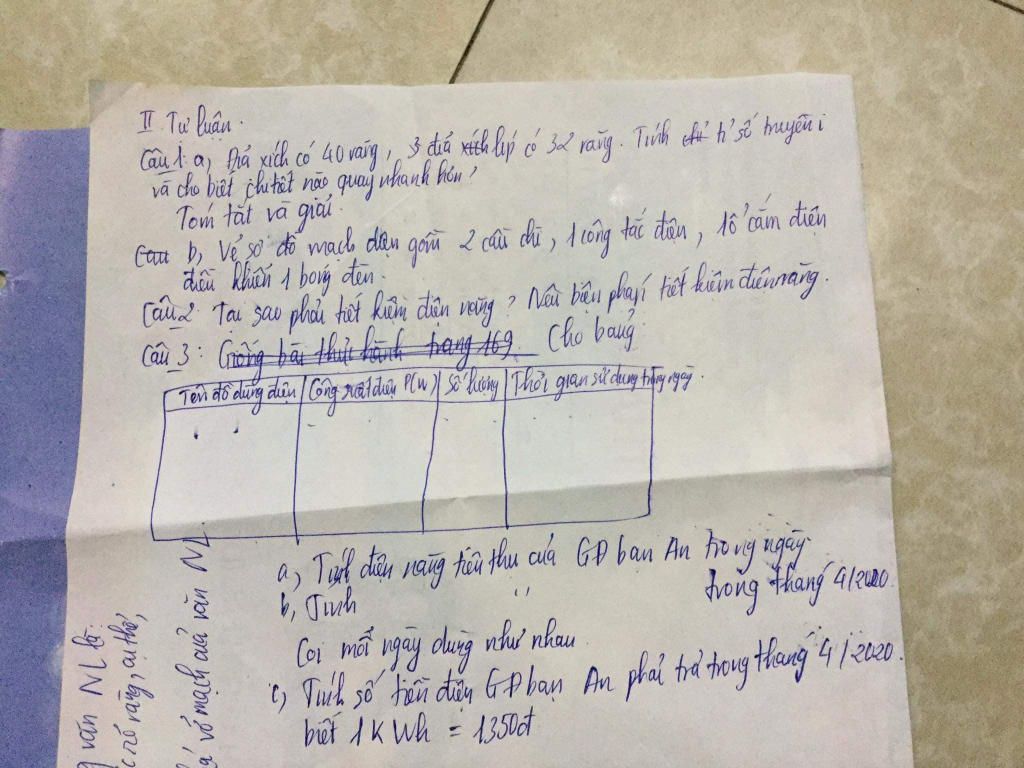 II Tự luận.
Câu 1: a, Đĩa xích có 40 răng, đĩa líp có 32 răng. Tính tỉ số truyền i
và cho biết chi tiết nào quay nhanh hơn?
Tóm tắt và giải.
Câu b, Vẽ sơ đồ mạch điện gồm 2 cầu chì, 1 công tắc điện, 1 ổ cắm điện
điều khiển 1 bóng đèn.
Câu 2 Tại sao phải tiết kiệm điện năng? Nêu biện pháp tiết kiệm điện năng.
Câu 3: Giống bài thực hành trang 169. Cho bảng
Tên đồ dùng điện Công suất điện P(W) Số lượng Thời gian sử dụng trong ngày.
a, Tính điện năng tiêu thụ của GĐ bạn An trong ngày
b, Tính " trong tháng 4/2020.
Coi mỗi ngày dùng như nhau.
c, Tính số tiền điện GĐ bạn An phải trả trong tháng 4/2020.
biết 1KWh = 1350đ
văn NL là:
răng, cụ thể,
vỡ mạch của văn NL